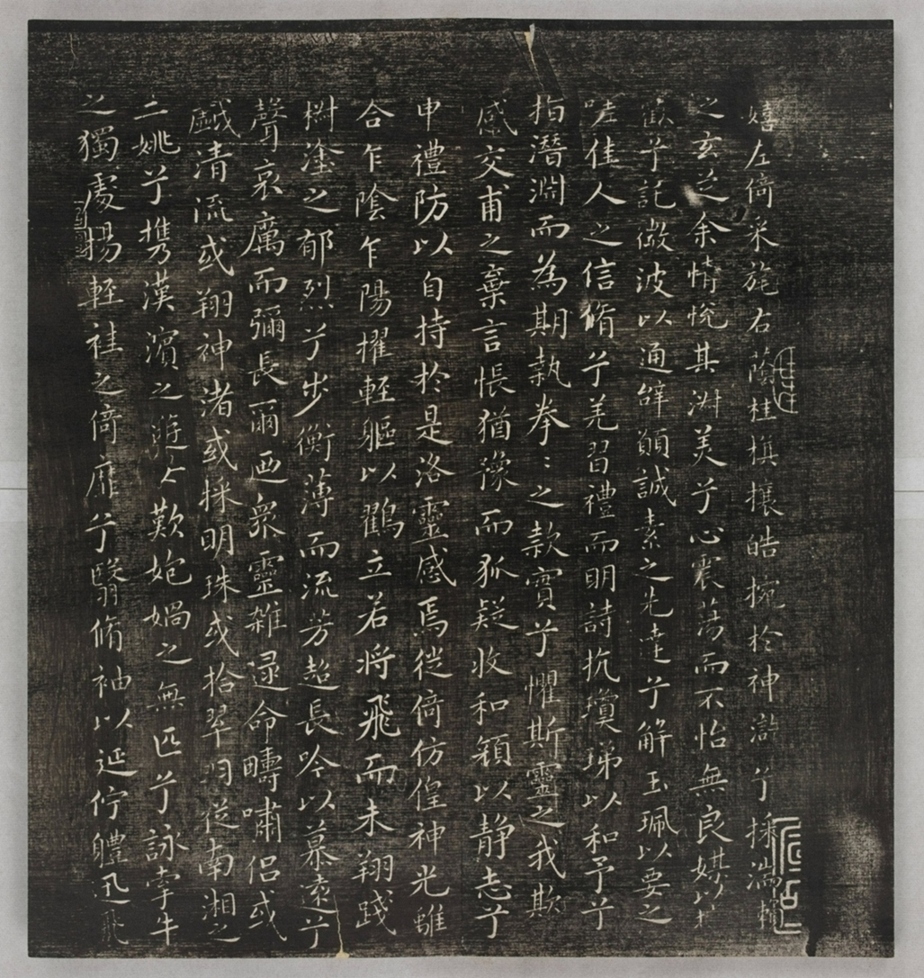 嬉左倚采旄右蔭桂旗攘皓捥於神滸兮採湍
之玄芝余情悅其淑美兮心震蕩而不怡無良媒以
歡兮託微波以通辭願誠素之先達兮解玉珮以要之
嗟佳人之信脩兮羌習禮而明詩抗瓊珶以和予兮
指潛淵而為期執拳〻之款實兮懼斯靈之我欺
感交甫之棄言悵猶豫而狐疑收和顏以靜志兮
申禮防以自持於是洛靈感焉徙倚仿偟神光離
合乍陰乍陽擢輕軀以鶴立若將飛而未翔踐
樹塗之郁烈兮步衡薄而流芳超長吟以慕遠兮
聲哀厲而彌長爾迺眾靈雜遝命疇嘯侶或
戲清流或翔神渚或採明珠或拾翠羽從南湘之
二姚兮攜漢濱之遊女歎媧之無匹兮詠牽牛
之獨處揚輕袿之倚靡兮翳脩袖以延佇體迅飛